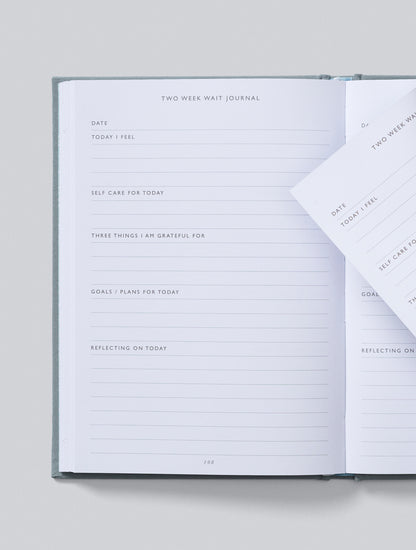 TWO WEEK WAIT JOURNAL
DATE
TODAY I FEEL
SELF CARE FOR TODAY
THREE THINGS I AM GRATEFUL FOR
GOALS / PLANS FOR TODAY
REFLECTING ON TODAY
TWO WEEK WAI
DATE
TODAY I FEEL
SELF CARE FOR
TH
DA
GOAL
REFLECTING ON